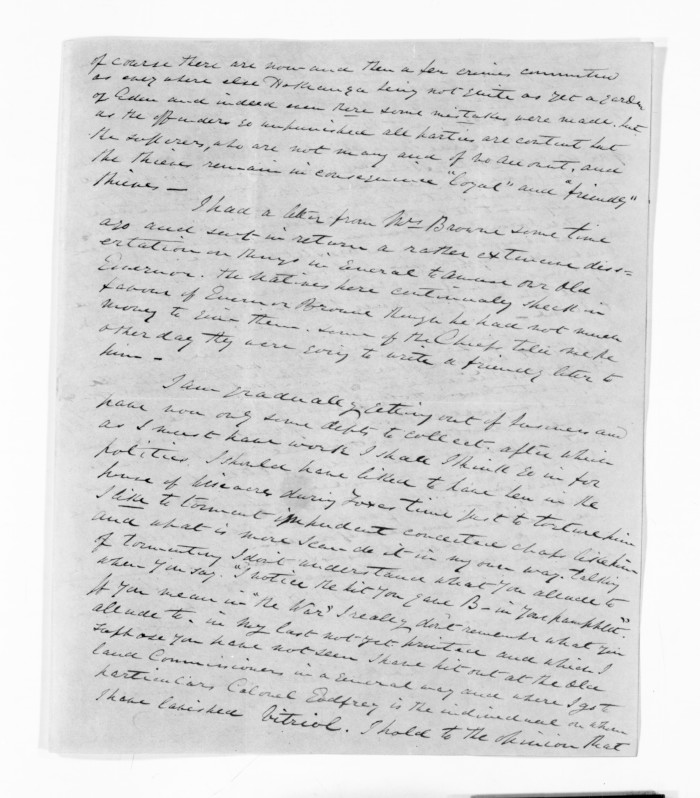 of course there are now and then a few crimes committed
as every where else Hokianga being not quite as yet a garden
of Eden and indeed even there some mistakes were made. but
as the offenders go unpunished all parties are content but
the sufferers, who are not many and of no account, and
the thieves remain in consequence "loyal" and "friendly"
thieves —
I had a letter from Mrs Browne some time
ago and sent in return a rather extensive diss=
ertation on things in General to amuse our old
Governor. the Natives here continually speak in
favour of Governor Browne though he had not much
money to give them. some of the Chiefs told me the
other day they were going to write a friendly letter to
him —
I am gradually getting out of business and
have now only some debts to collect. after which
as I must have work I shall I think go in for
politics. I should have liked to have been in the
house of during Foxes time just to torture him
I like to torment conceited chap like him
and what is more I can do it in my own way. talking
of tormenting I dont understand what you allude to
when you say. "I notice the hit you gave B— in your pamphlet."
If you mean in "the War" I really dont remember what you
allude to. in my last not yet printed and which I
suppose you have not seen I have hit out at the old
land Commissioners in a General way and where I got
particulars Colonel Godfrey is the individual on whom
I have lavished Vitriol. I hold to the opinion that